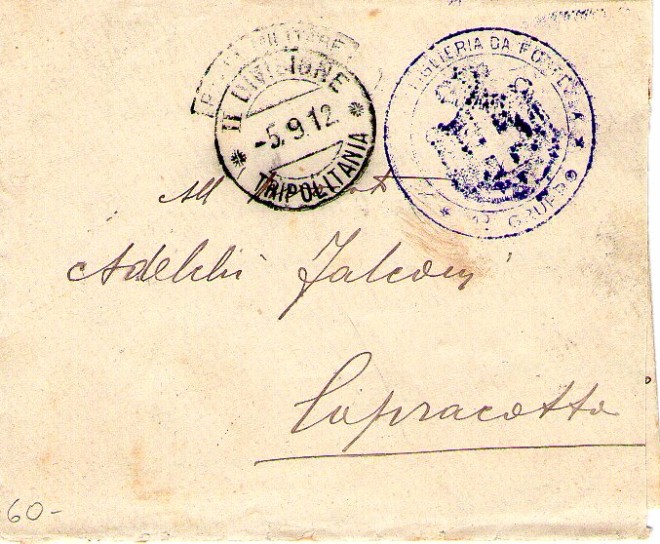 II DIVISIONE
-5.9.12
TRIPOLITANIA
DA FORTEZZA
GRUPPO
All
Adelchi Falconi
Capracotta
60-